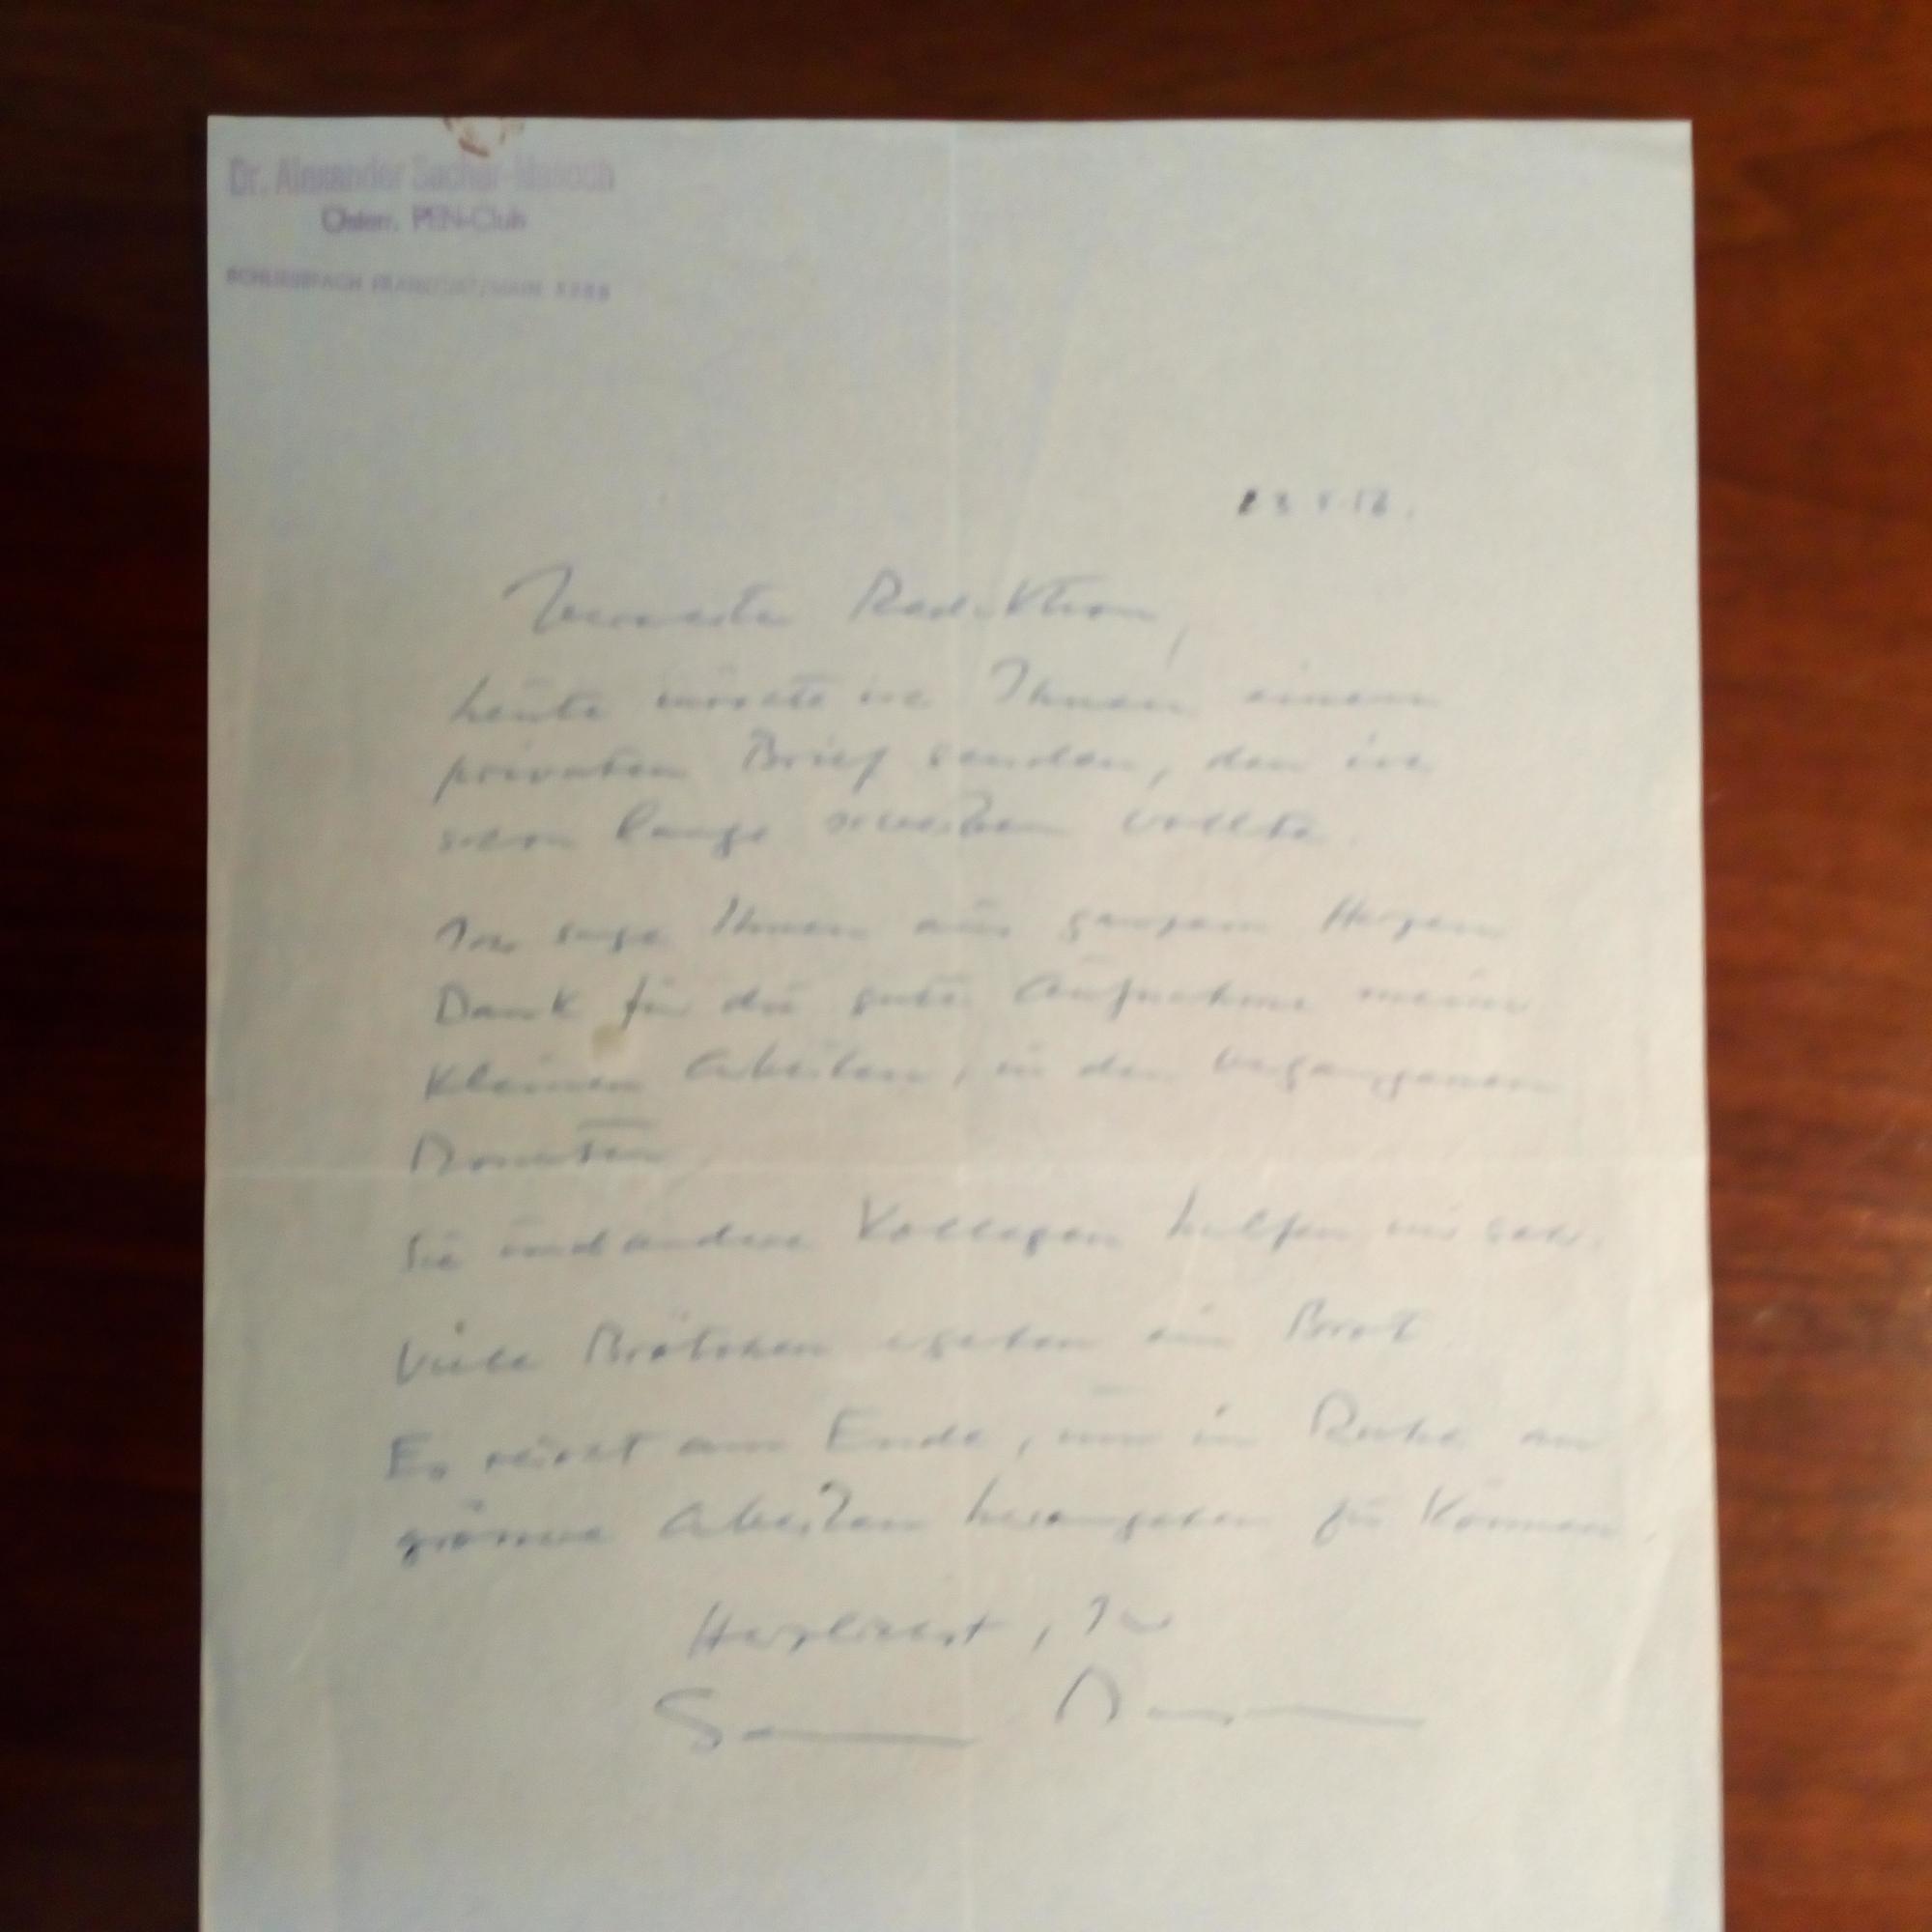 Dr. Alexander Sacher-Masoch
Österr. PEN-Club
SCHLIESSFACH FRANKFURT/MAIN
Verehrte Redaktion,
heute möchte ich Ihnen einen
privaten Brief senden, den ich
schon lange schreiben wollte.
Ich sage Ihnen aus ganzem Herzen
Dank für die gute Aufnahme meiner
kleinen Arbeiten, in den vergangenen
Monaten
Sie und andere Kollegen helfen mir sehr.
Viele Brötchen ergeben ein Brot
Es reicht am Ende, um in Ruhe an
grössere Arbeiten herangehen zu können.
Herzlichst, Ihr